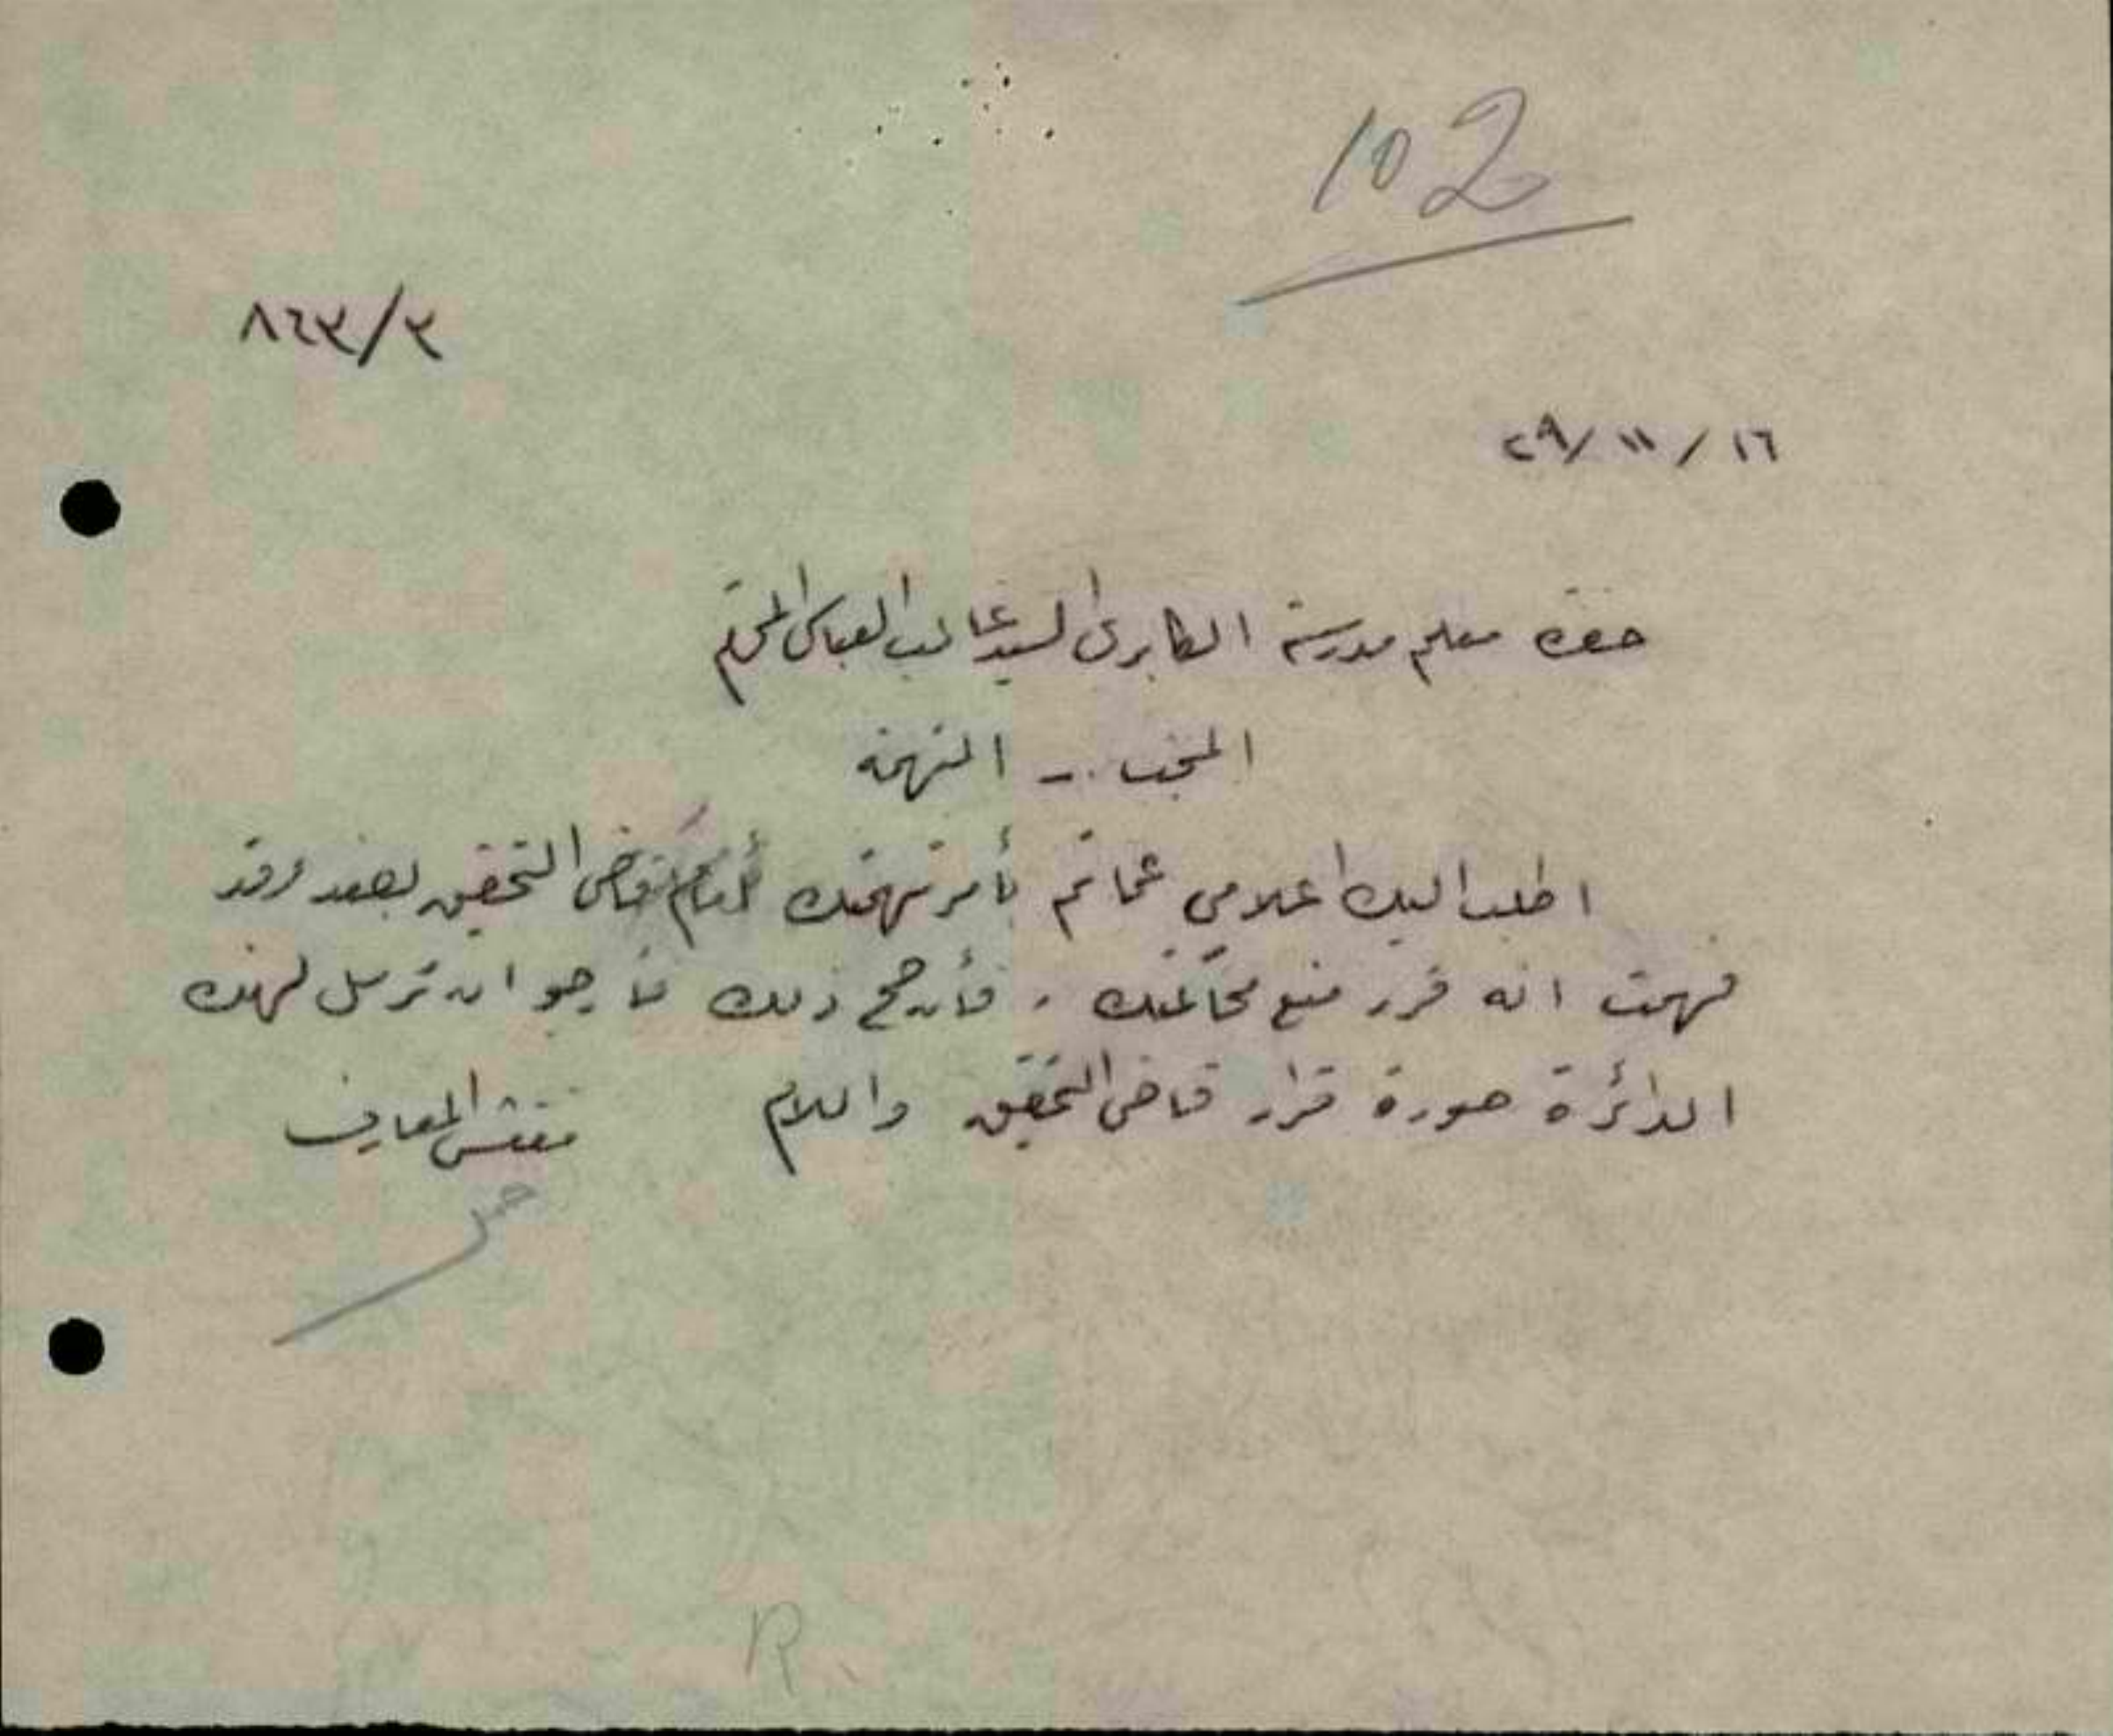 102
٨٤٣/٣
١٦/ ١١ /٢٩
حضرة معلم مدرسة الطابري السيد غالب العباسي المحترم
المبحث :- التهمة
اطلب اليك اعلامي عما تم بأمر تهمتك أمام قاضي التحقيق بصفد وقد
فهمت انه قرر منع محاكمتك . فأن صح ذلك فأرجو ان ترسل لهذه
الدائرة صورة قرار قاضي التحقيق والسلام
مفتش المعارف